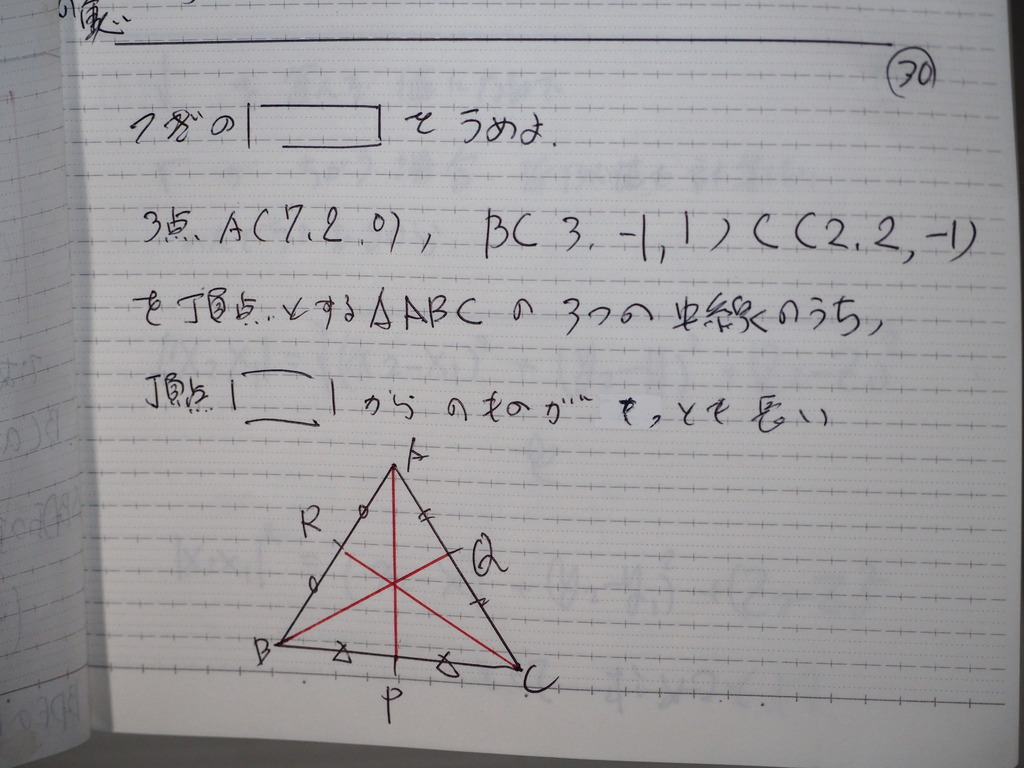 の重心
30
つぎの□をうめよ.
3点 A(7,2,0), B(3,-1,1) C(2,2,-1)
を頂点とする△ABCの3つの中線のうち,
頂点□からのものがもっとも長い
A
R
Q
B
C
P